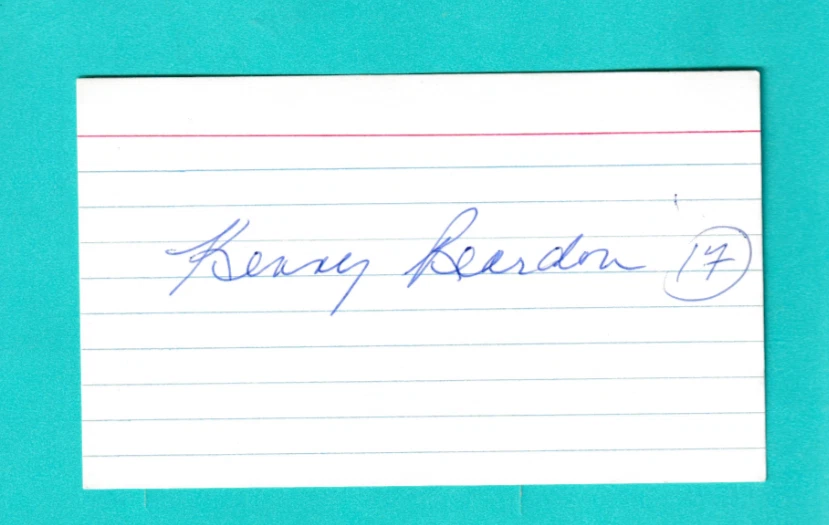 Kenny Reardon 17